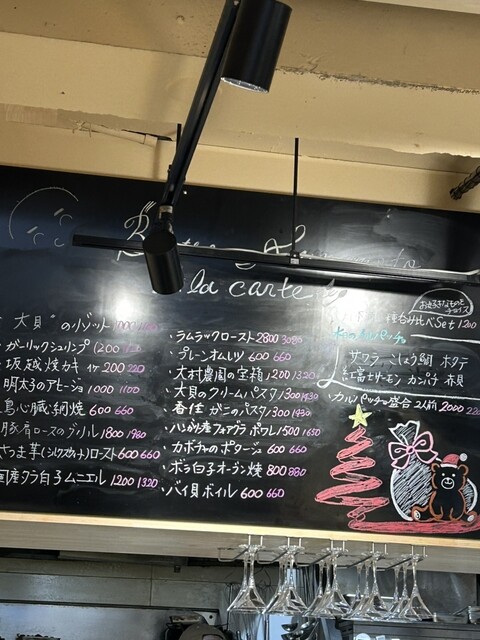 la carte
"大貝"のリゾット
ガーリックシュリンプ 1200
坂越焼カキ 1ケ 200 220
明太子のアヒージョ 1000 1100
鳥心臓網焼 600 660
豚肩ロースのグリル 1800 1980
やま芋(ジャケカット)ロースト 600 660
国産タラ白子ムニエル 1200 1320
・ラムラックロースト 2800 3080
・プレーンオムレツ 600 660
・大村農園の宝箱 1200 1320
・大貝のクリームパスタ 1300 1430
・香住ガニのパスタ 1300 1430
・ハンガリ産フォアグラポワレ 1500 1650
・カボチャのポタージュ 600 660
・ボラ白子オーブン焼 800 880
・バイ貝ボイル 600 660
お好きなものを
チョイス
種呑み比べSet 1200
サワラ こしょう鯛 ホタテ
紅富士サーモン カンパチ 赤貝
・カルパッチョ盛合 2人前 2000 220